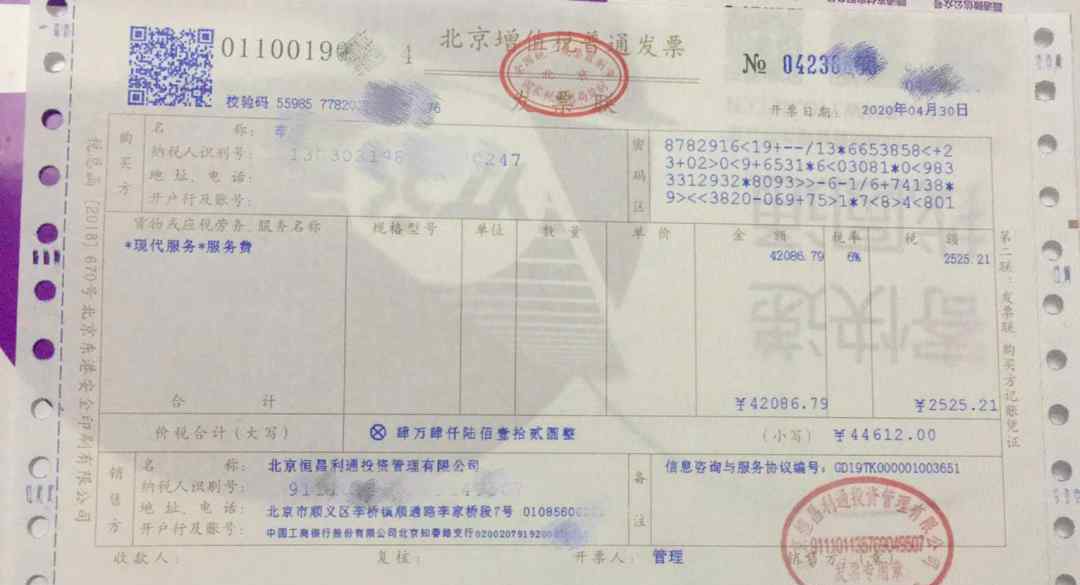 0110019
4
北京增值税普通发票
发票联
№ 04236
校验码 55985 77820 76
开票日期： 2020年04月30日
购买方
名 称：
纳税人识别号：
地 址、电 话：
开户行及账号：
247
密码区
8782916<19+--/13*6653858<+2
3+02>0<9+6531*6<03081*0<983
3312932*8093>>-6-1/6+74138*
9><<3820-069+75>1*7<8>4<801
货物或应税劳务、服务名称 规格型号 单位 数 量 单 价 金 额 税率 税 额
*现代服务*服务费 42086.79 6% 2525.21
合 计 ¥42086.79 ¥2525.21
价税合计（大写） ⊗ 肆万肆仟陆佰壹拾贰圆整 （小写） ¥44612.00
销售方
名 称： 北京恒昌利通投资管理有限公司
纳税人识别号： 91
地 址、电 话： 北京市顺义区李桥镇顺通路李家桥段7号 01085600
开户行及账号： 中国工商银行股份有限公司北京知春路支行02002079192000
备注
信息咨询与服务协议编号：GD19TK000001003651
收款人： 复核： 开票人： 管理
税总函〔2018〕670号北京东港安全印刷有限公司
第二联：发票联 购买方记账凭证
寄快递